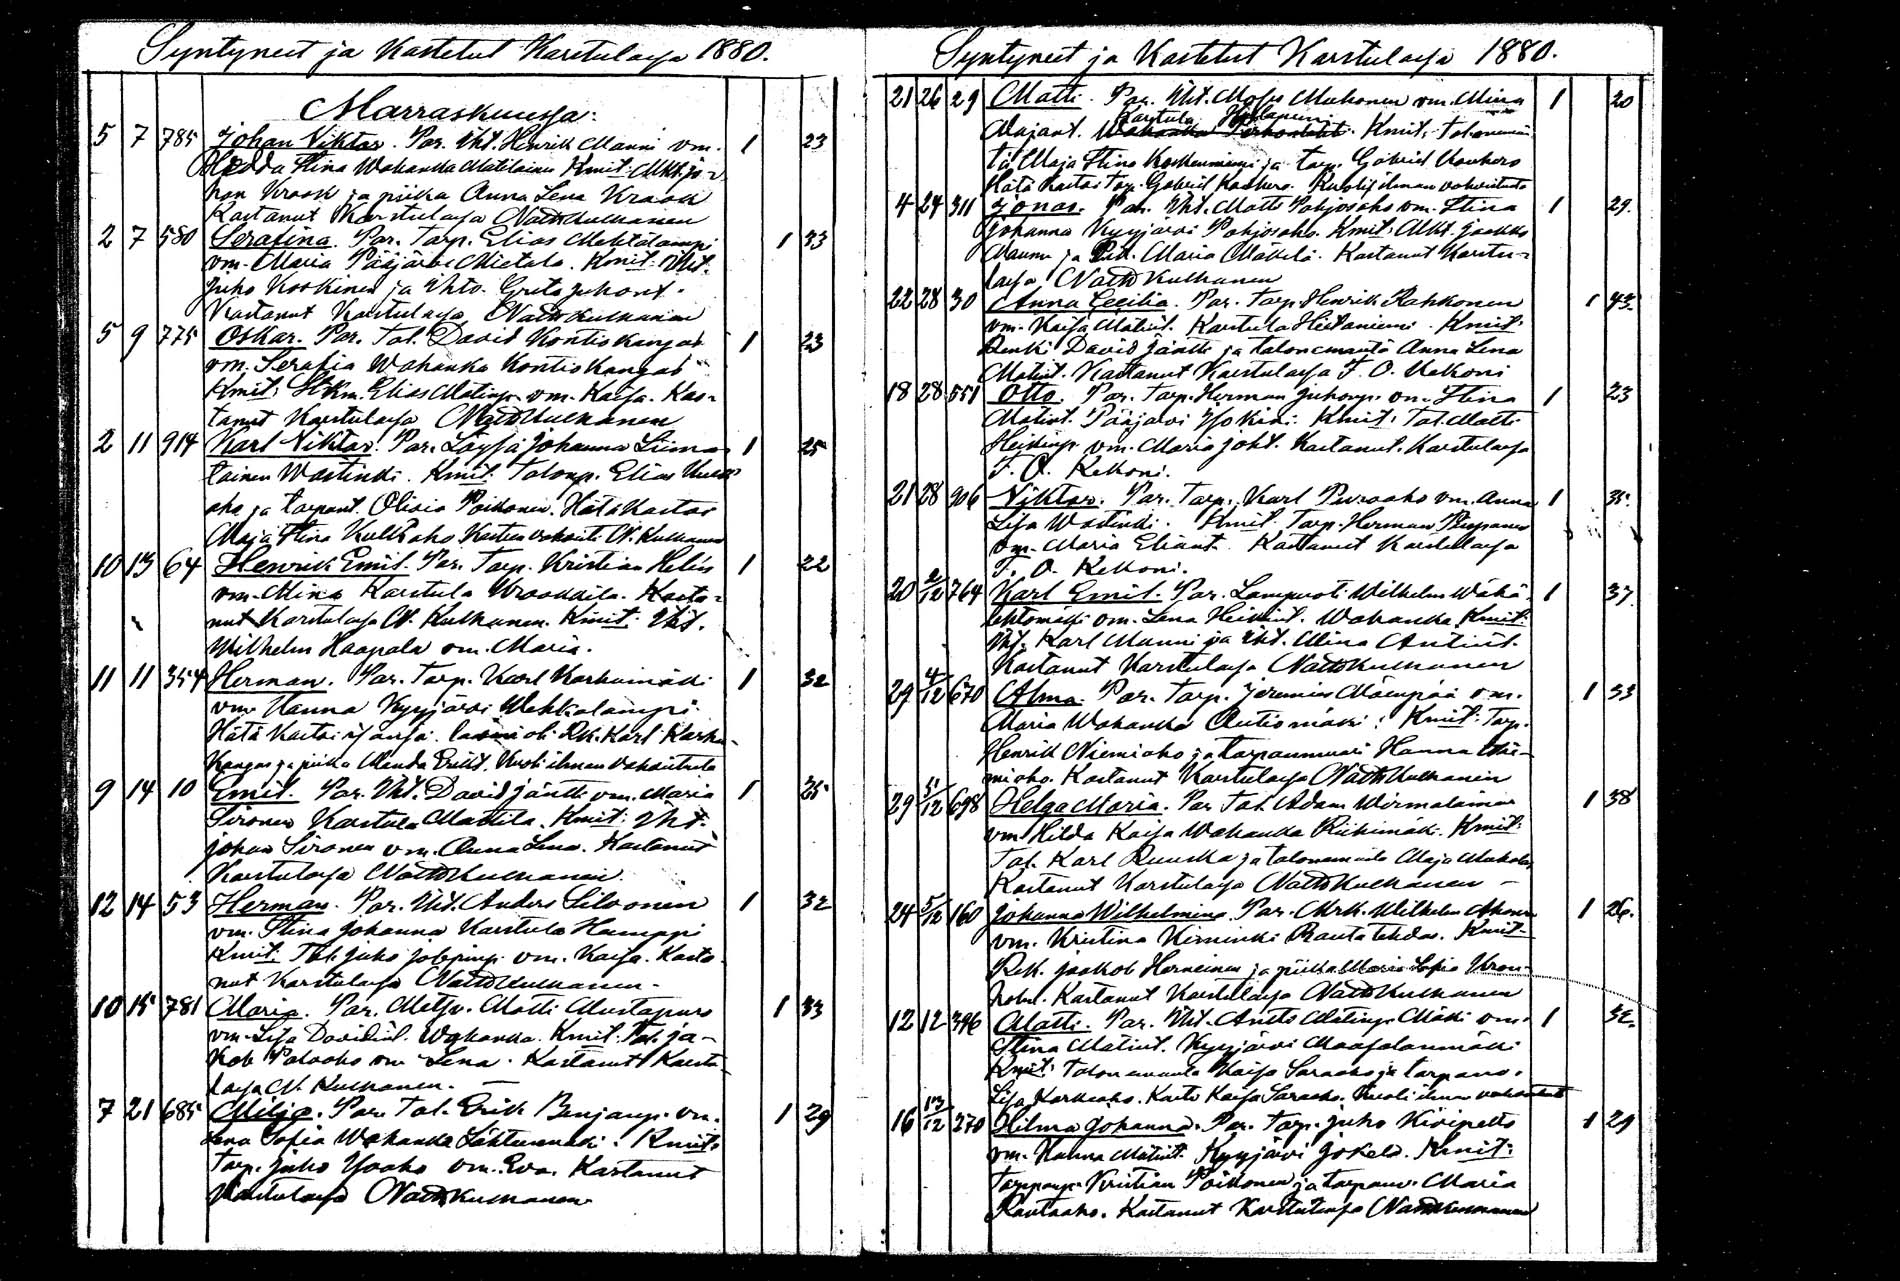 Syntyneet ja Kastetut Karstulasa 1880.
Marraskuussa.
5 7 785 Johan Viktor. Par. Iht. Henrik Manni vm. 1 23
Hedda Stina Wahanka Matilainen Kmit: Mkt. Jo-
han Kraak ja piika Anna Lena Kraak
Kastanut Karstulasa Natth Kulhanen
2 7 580 Serafina. Par. Torp. Elias Mehtälampi 1 33
vm. Maria Pääjärvi Mietala. Kmit: Iht.
Juho Koskinen ja Ihto. Greta Juhont.
Kastanut Karstulasa Natth Kulhanen
5 9 775 Oskar. Par. Tal. David Kontiokangas 1 23
vm. Serafia Wahanka Kontiokangas
Kmit: Elias Matinp. vm. Kaisa. Kas-
tanut Karstulasa Natth Kulhanen
2 11 914 Karl Viktor. Par. Löysä Johanna Liima- 1 25
tainen Wastinki. Kmit: Talonp. Elias
aho ja torpant. Olivia Poikonen. Hätäkastoi
Maja Stina aho Kasteen vahvisti N. Kulhanen
10 13 64 Henrik Emil. Par. Torp. Kristian Helin 1 22
vm. Mina Karstula Kraakkila. Kasta-
nut Karstulasa N. Kulhanen. Kmit: Iht.
Wilhelm Haapala vm. Maria.
11 11 354 Herman. Par. Torp. Karl Karhumäki 1 32
vm. Hanna Kyyjärvi Mehkalampi
Hätä kastoi läsnä oli Rk. Karl Karhu-
kangas ja piika Manda Erikt. Kuoli ilman vahvistusta
9 14 10 Emil. Par. Iht. David Jäntti vm. Maria 1 25
Sironen Karstula Mattila. Kmit: Iht.
Johan Sironen vm. Anna Lena. Kastanut
Karstulasa Natth Kulhanen
12 14 53 Herman. Par. Iht. Anders Silvonen 1 32
vm. Stina Johanna Karstula Humppi
Kmit: Tal. Juho vm. Kaisa. Kasta-
nut Karstulasa Natth Kulhanen.
10 15 781 Maria. Par. Metsv. Matti Mustapuro 1 33
vm. Lisa Davidint. Wahanka. Kmit: Tal. Ja-
kob Palaaho vm. Lena. Kastanut Karstu-
lasa N. Kulhanen.
7 21 685 Milja. Par. Tal. Erik Benjamp. vm. 1 29
Lena Sofia Wahanka Lähteenmäki. Kmit:
Torp. Juho Ysaho vm. Eva. Kastanut
Karstulasa Natth Kulhanen
Syntyneet ja Kastetut Karstulasa 1880.
21 26 29 Matti. Par. Iht. Moses Muhonen vm. Mina 1 20
Karstula
Majant. Kmit: Talonemän-
tä Maja Stina Koskenniemi ja torp. Gabriel Kauhero
Hätä kastoi Torp. Gabriel Kauhero. Kuoli ilman vahvistusta
4 24 311 Jonas. Par. Iht. Matti Pohjosaho vm. Stina 1 29.
Johanna Kyyjärvi Pohjosaho. Kmit: Mkt. Jaakko
Maunu ja Piik. Maria Mäkelä. Kastanut Karstu-
lasa Natth Kulhanen
22 28 30 Anna Cecilia. Par. Torp. Henrik Rahkonen 1 43.
vm. Kaisa Matint. Karstula Hietaniemi. Kmit:
Renki David Jäntti ja talonemäntä Anna Lena
Matint. Kastanut Karstulasa F. O. Kekoni
18 28 551 Otto. Par. Torp. Herman Juhonp. vm. Stina 1 23
Matint. Pääjärvi Kmit: Tal. Matti
Heikinp. vm. Maria Joht. Kastanut Karstulasa
F. O. Kekoni.
21 28 906 Viktor. Par. Torp. Karl Puraaho vm. Anna 1 35.
Lisa Wastinki. Kmit: Torp. Herman Piispanen
vm. Maria Eliant. Kastanut Karstulasa
F. O. Kekoni.
20 2/12 764 Karl Emil. Par. Lampuoti Wilhelm Wähä- 1 37
lehtomäki vm. Lena Heikint. Wahanka Kmit:
Iht. Karl Manni ja Iht. Mina Antint.
Kastanut Karstulasa Natth Kulhanen
29 4/12 670 Alma. Par. Torp. Jeremias Mäenpää vm. 1 33
Maria Wahanka Autiomäki. Kmit: Torp.
Henrik Niemiaho ja torpanmuori Hanna Nie-
miaho. Kastanut Karstulasa Natth Kulhanen
29 5/12 698 Helga Maria. Par. Tal. Adam Wirmalainen 1 38
vm. Hilda Kaisa Wahanka Riihimäki. Kmit:
Tal. Karl Ruuska ja talonemäntä Maja
Kastanut Karstulasa Natth Kulhanen
24 5/12 160 Johanna Wilhelmina. Par. Mrk. Wilhelm Ahonen 1 26.
vm. Kristina Kiminki Rautatehdas. Kmit:
Rek. Jaakob Herneinen ja piika Maria Sofia Kron-
holm. Kastanut Karstulasa Natth Kulhanen
12 12 396 Matti. Par. Iht. Antti Matinp. Mäki vm. 1 32.
Stina Matint. Kyyjärvi Maasalanmäki
Kmit: Talonemäntä Kaisa Saraaho ja torpanv.
Lisa Korkeaho. Kasti Kaisa Saraaho. Kuoli ilman vahvistust
16 13/12 270 Hilma Johanna. Par. Torp. Juho Kivipelto 1 29
vm. Hanna Matint. Kyyjärvi Jokela. Kmit:
Torpanp. Kristian Poikonen ja torpanv. Maria
Rautaaho. Kastanut Karstulasa Natth Kulhanen